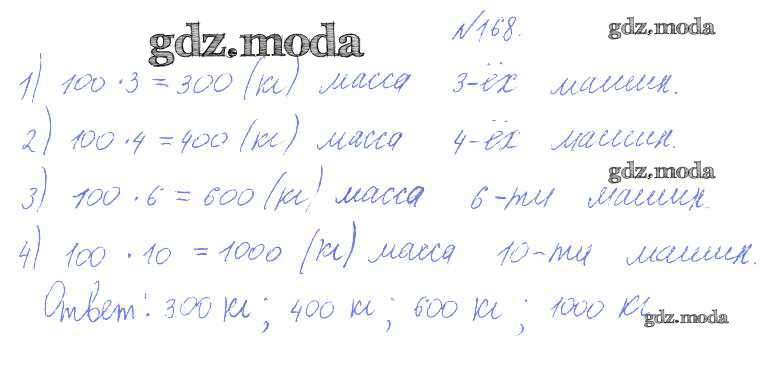 №168.
gdz.moda
gdz.moda
1) 100 · 3 = 300 (кг) масса 3-ёх машин.
2) 100 · 4 = 400 (кг) масса 4-ёх машин.
gdz.moda
3) 100 · 6 = 600 (кг) масса 6-ти машин.
4) 100 · 10 = 1000 (кг) масса 10-ти машин.
Ответ: 300 кг; 400 кг; 600 кг; 1000 кг
gdz.moda